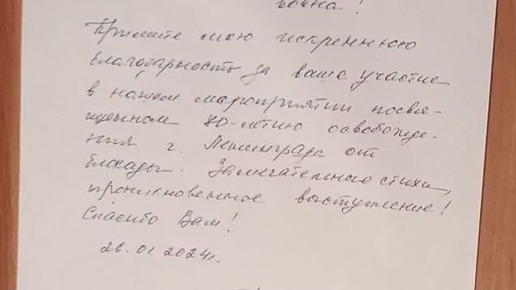 Примите мою искреннюю
благодарность за ваше участие
в нашем мероприятии посвя-
щенном 80-летию освобожде-
ния г. Ленинграда от
блокады. Замечательные стихи,
проникновенное выступление!
Спасибо Вам!
26.01.2024г.